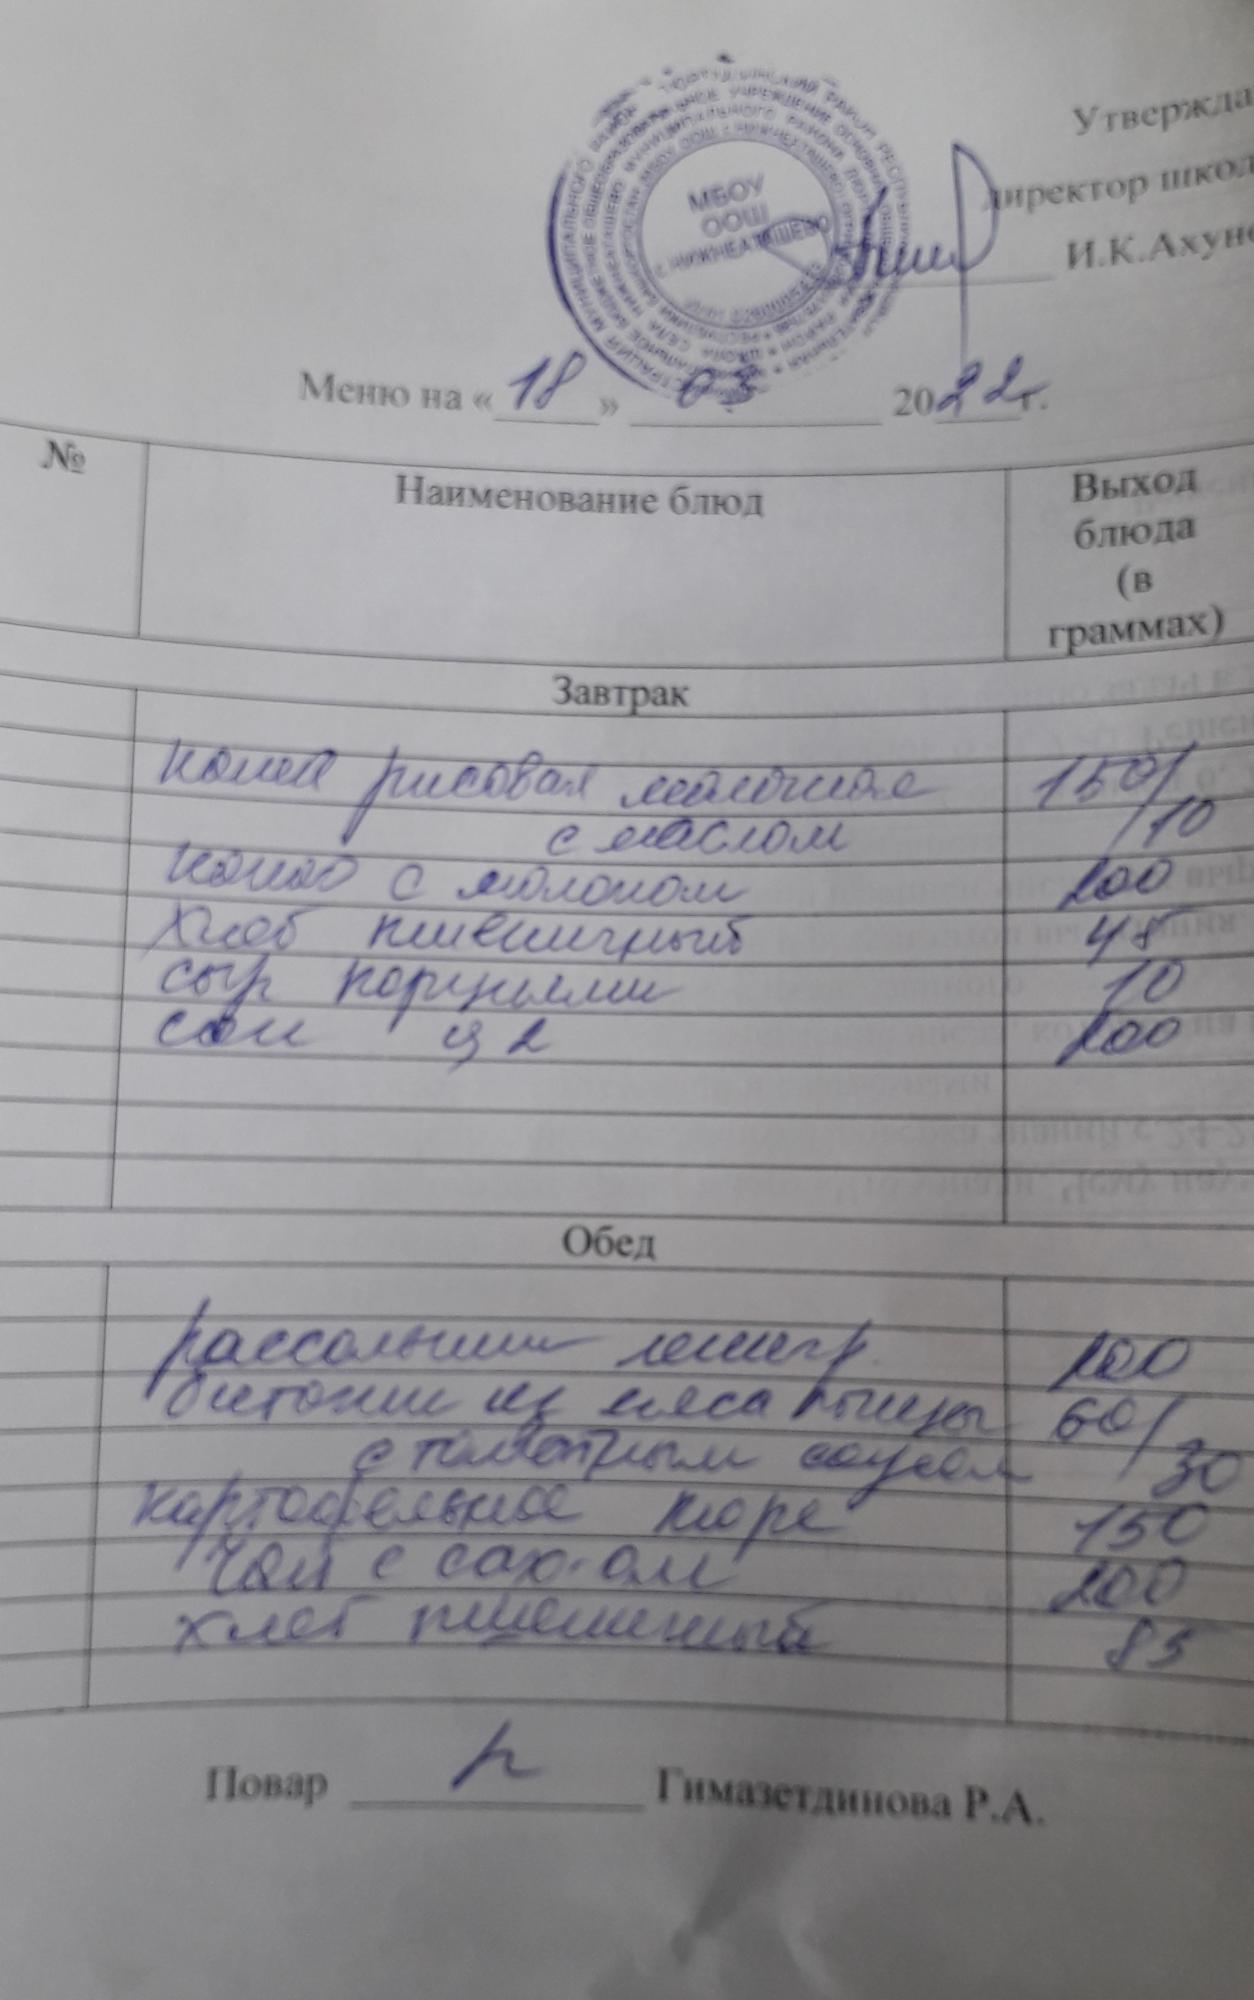 Утвержда
директор школ
И.К.Ахун
МБОУ
ООШ
с НИЖНЕАТАШЕВО
Меню на « 18 » 03 2022г.
№ Наименование блюд Выход
блюда
(в
граммах)
Завтрак
каша рисовая молочная 150/
с маслом /10
какао с молоком 200
хлеб пшеничный 45
сыр порциями 10
сок 200
Обед
рассольник ленингр. 200
биточки из мяса птицы 60/
с томатным соусом /30
картофельное пюре 150
чай с сах-ом 200
хлеб пшеничный 85
Повар Гимазетдинова Р.А.